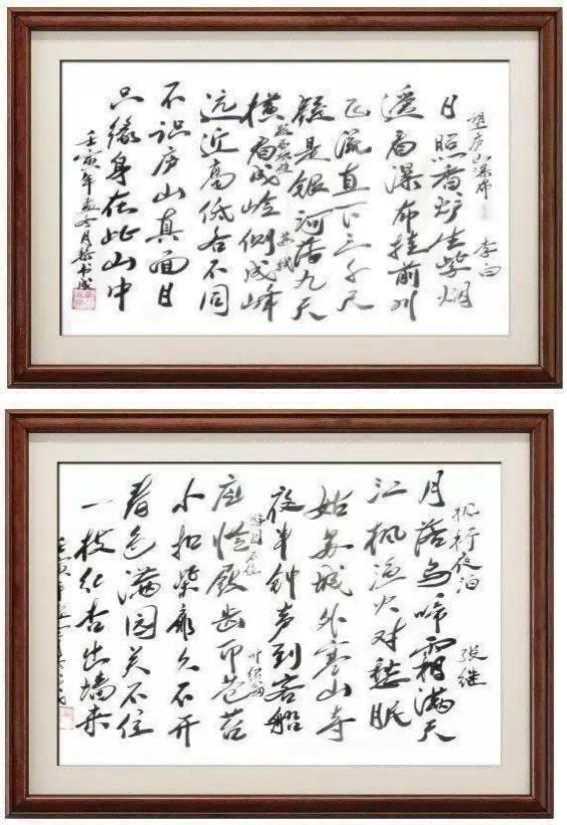 望庐山瀑布 李白
日照香炉生紫烟
遥看瀑布挂前川
飞流直下三千尺
疑是银河落九天
题西林壁 苏轼
横看成岭侧成峰
远近高低各不同
不识庐山真面目
只缘身在此山中
壬寅年 月 书
枫桥夜泊 张继
月落乌啼霜满天
江枫渔火对愁眠
姑苏城外寒山寺
夜半钟声到客船
游园不值 叶绍翁
应怜屐齿印苍苔
小扣柴扉久不开
春色满园关不住
一枝红杏出墙来
壬寅年